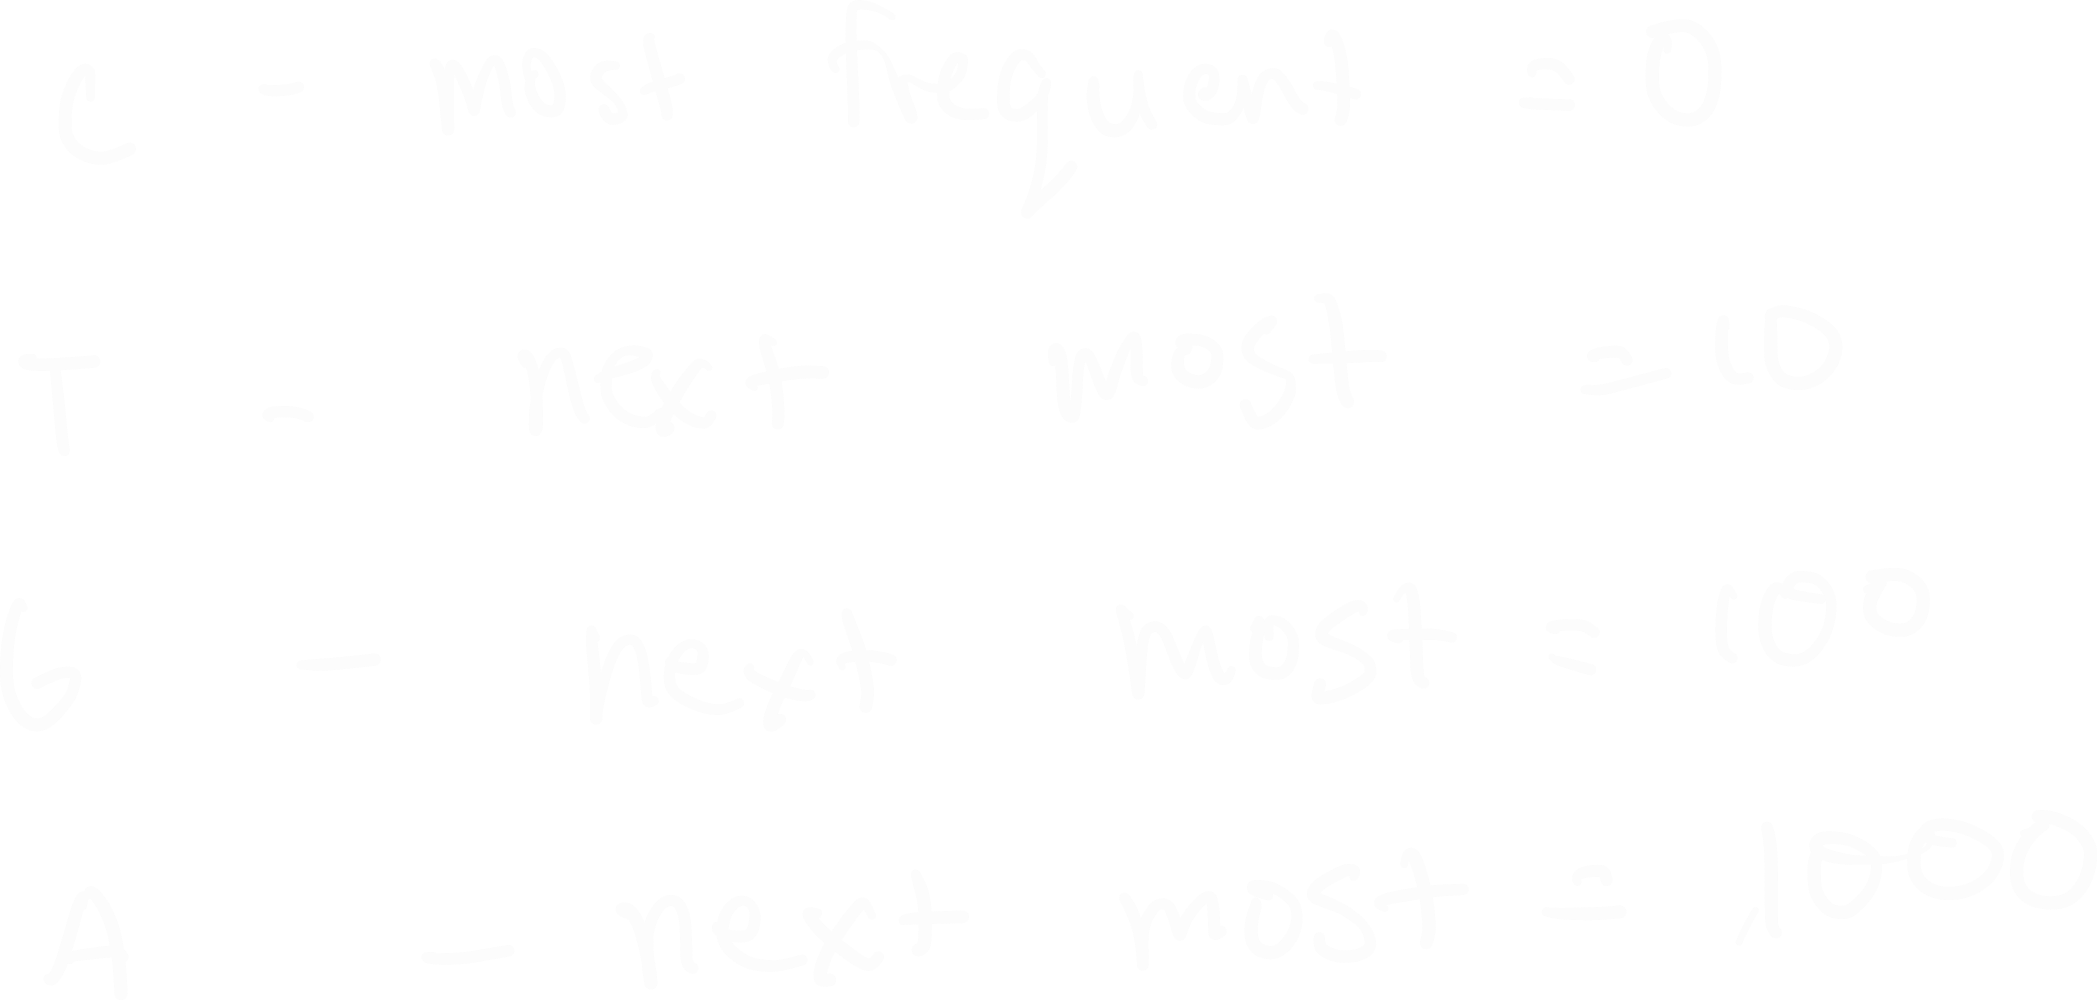 C - most frequent = 0
T - next most = 10
G - next most = 100
A - next most = 1000